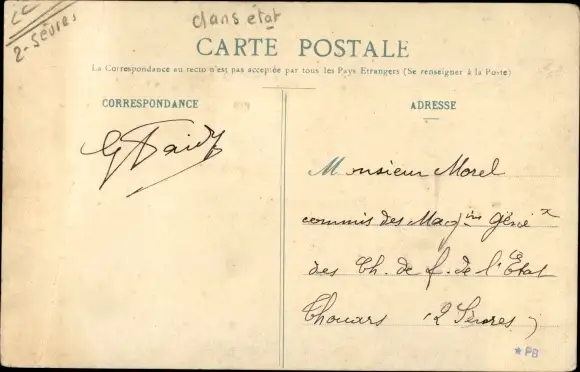 2-Sèvres
dans état
CARTE POSTALE
La Correspondance au recto n'est pas acceptée par tous les Pays Etrangers (Se renseigner à la Poste)
CORRESPONDANCE
ADRESSE
Monsieur Morel
commis des Mag^ins Géné^x
des Ch. de f. de l'État
Thouars (2 Sèvres)
*PB